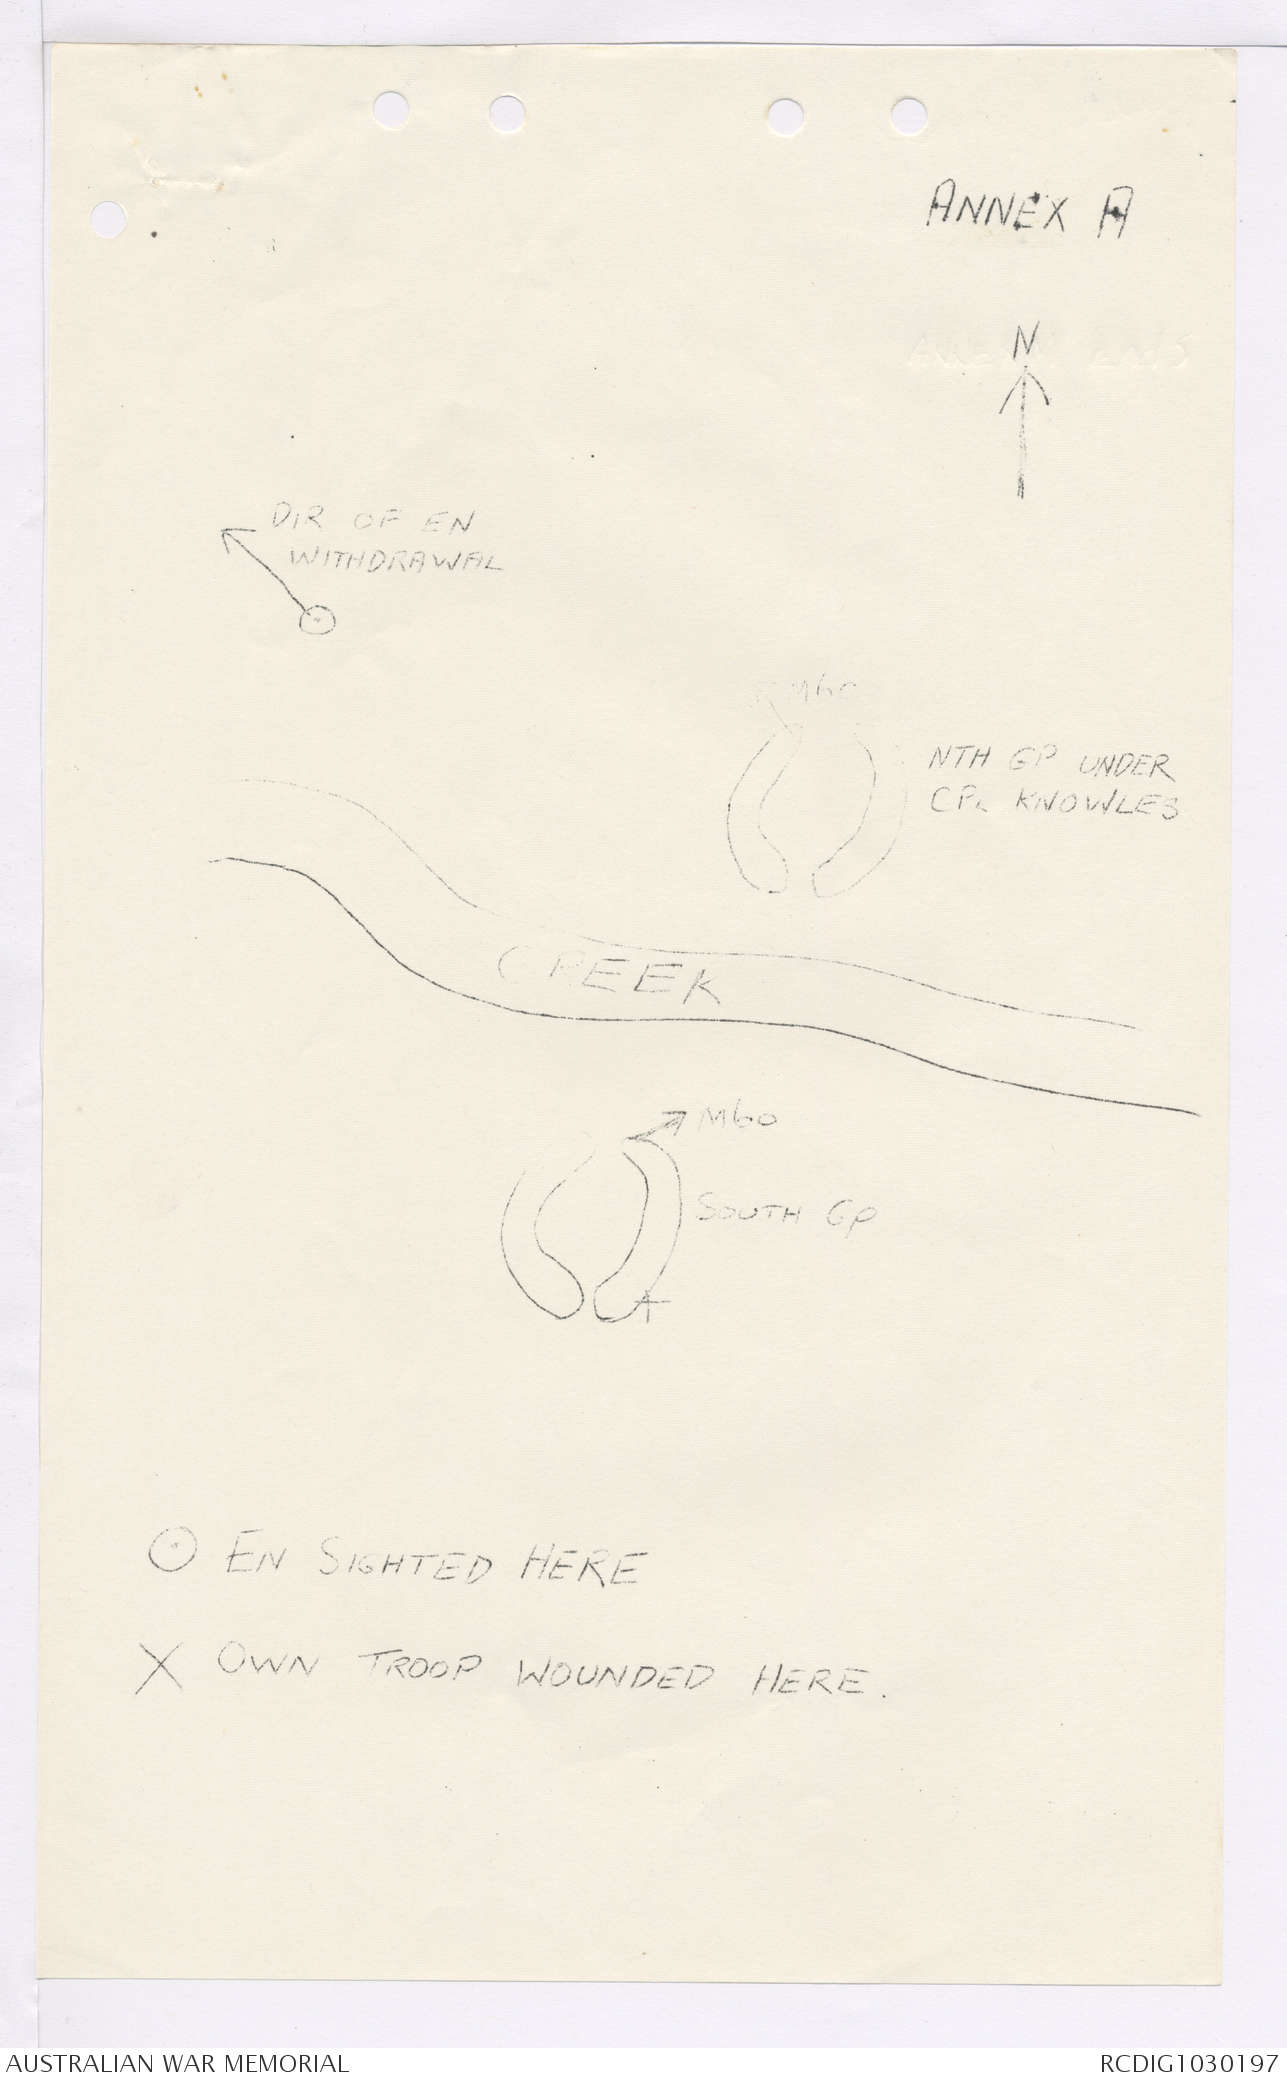 ANNEX A
N
DIR OF EN
WITHDRAWAL
M60
NTH GP UNDER
CPL KNOWLES
CREEK
M60
SOUTH GP
EN SIGHTED HERE
X OWN TROOP WOUNDED HERE.
AUSTRALIAN WAR MEMORIAL
RCDIG1030197